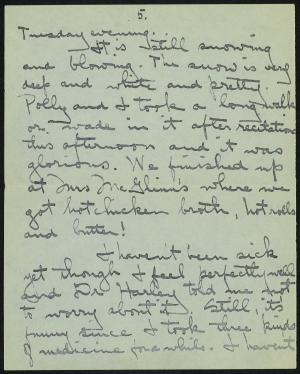 5.
Tuesday evening.
It is still snowing
and blowing. The snow is very
deep and white and pretty.
Polly and I took a "long walk
or wade in it after recitations
this afternoon and it was
glorious. We finished up
at Mrs McGlinn's where we
got hot chicken broth, hot rolls
and butter!
I haven't been sick
yet though I feel perfectly well
and Dr told me not
to worry about it. Still, it's
funny since I took three kinds
of medicine for a while. I haven't